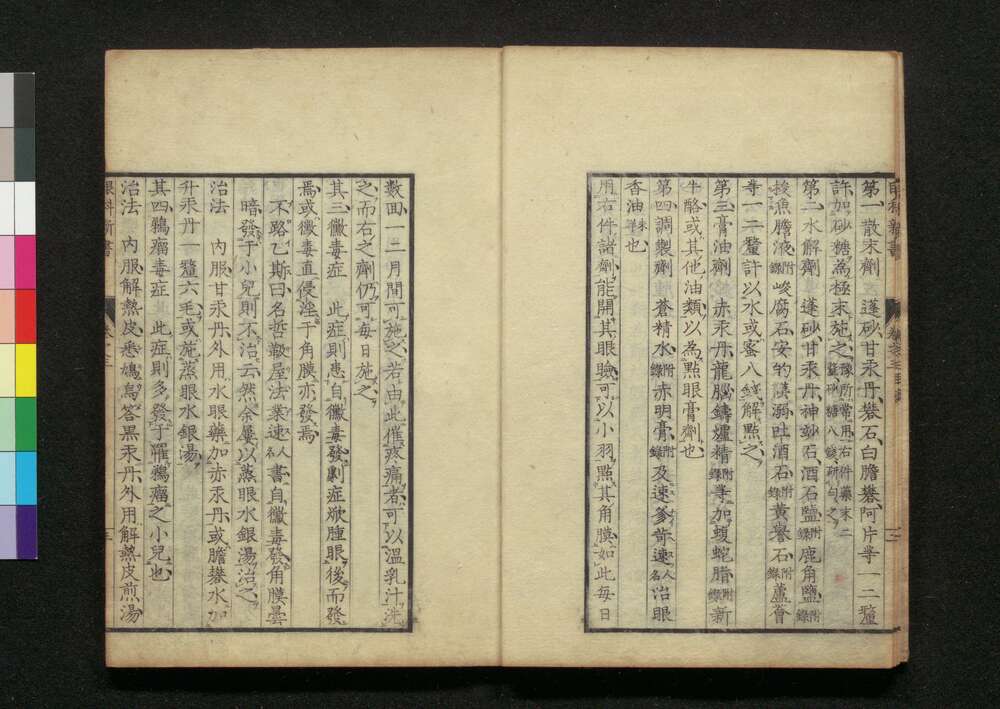 眼科新書
第一散末劑　蓬砂、甘汞丹、礬石、白膽礬、阿片等一二釐
許、加砂糖為極末、施之、豫所常用、右件藥末二釐、砂糖八錢、研勻之、
第二水解劑　蓬砂、甘汞丹、神妙石、酒石鹽附錄鹿角鹽附錄
梭魚膽液附錄峻腐石、安質謨溺、吐酒石附錄黃礬石附錄蘆薈
等一二釐許、以水或蜜八錢解點之、
第三膏油劑　赤汞丹、龍腦鑄爐精附錄等、加蝮蛇脂附錄新
牛酪或其他油類、以為點眼膏劑也
第四調製劑　蒼精水附錄赤明膏附錄及速爹苛速人名治眼
香油未詳也
用右件諸劑、能開其眼瞼、可以小羽點其角膜、如此每日
數回、一二月間、可施之、若由此催疼痛者、可以溫乳汁洗
之、而右之劑仍可每日施之、
其三黴毒症　此症則患自黴毒發劇症焮腫眼、後而發
焉、或黴毒直侵淫于角膜、亦發焉
不路乙斯曰、名哲歇屋法葉速人名書、自黴毒發角膜曇
暗、發于小兒則不治云、然余屢以蒸眼水銀湯治之、
治法　內服甘汞丹、外用水眼藥、加赤汞丹、或膽礬水、加
升汞丹一釐六毛、或施蒸眼水銀湯
其四鵝瘤毒症　此症則多發于罹鵝瘤之小兒也
治法　內服解熱皮、悉鳩鳥答、黑汞丹、外用解熱皮煎湯
眼科新書　卷之三　三